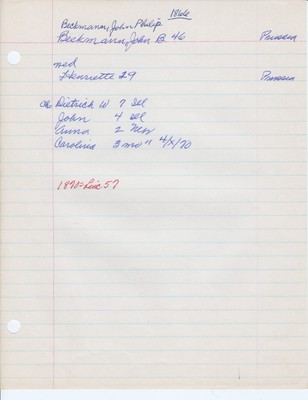 Beckmann, John Philip 1866
Beckmann, John B 46 Prussia
med
Henriette 29 Prussia
Ch Dietrich W 7 Ill
John 4 Ill
Anna 2
Carolina 3 mo " 4/X/70
1870 = Line 57